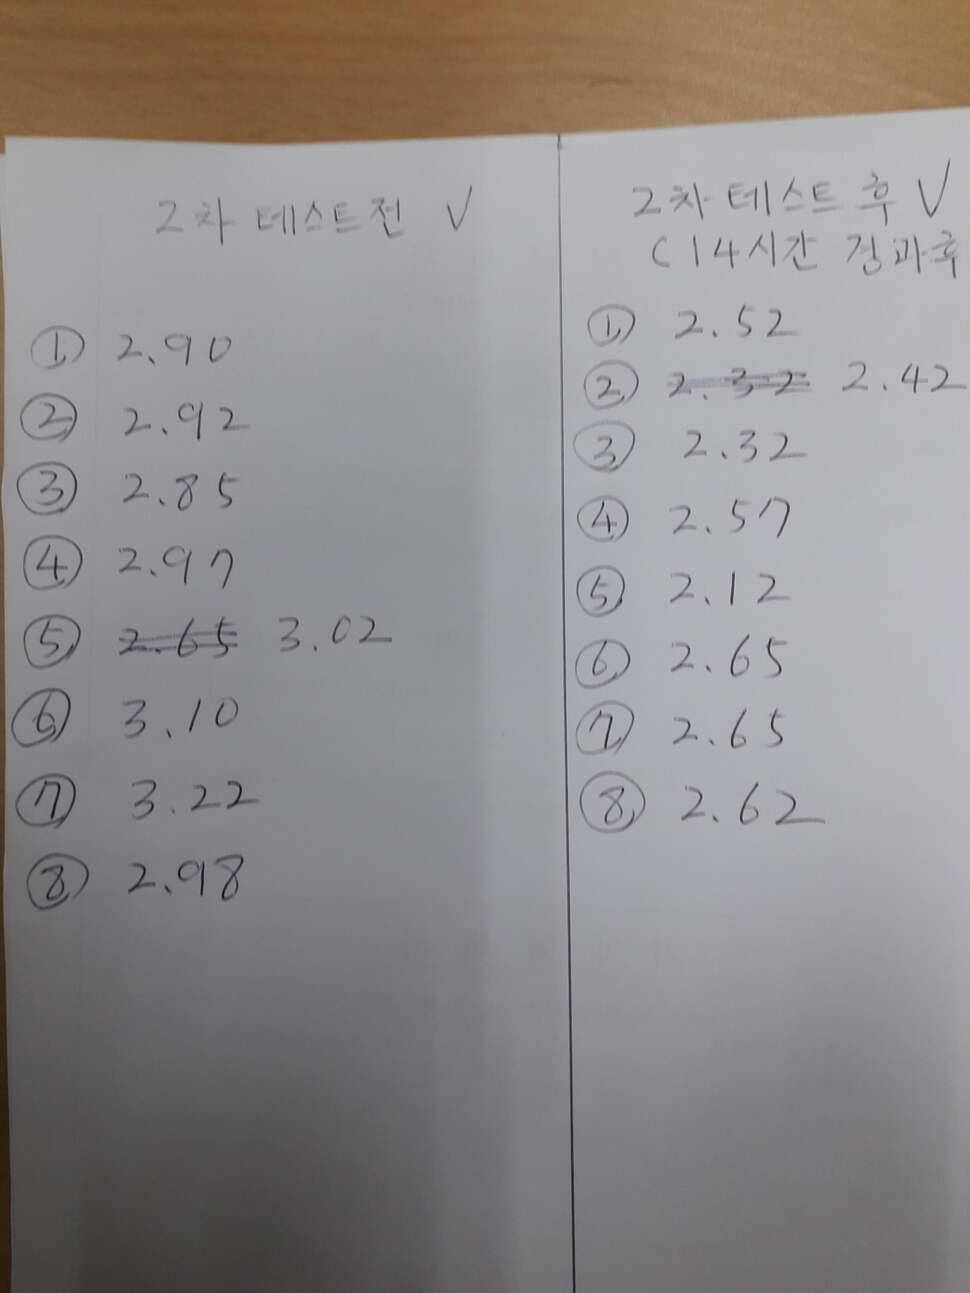 2차 테스트전 V
① 2.90
② 2.92
③ 2.85
④ 2.97
⑤ 2.65 3.02
⑥ 3.10
⑦ 3.22
⑧ 2.98
2차 테스트 후 V
(14시간 경과후
① 2.52
② 2.32 2.42
③ 2.32
④ 2.57
⑤ 2.12
⑥ 2.65
⑦ 2.65
⑧ 2.62